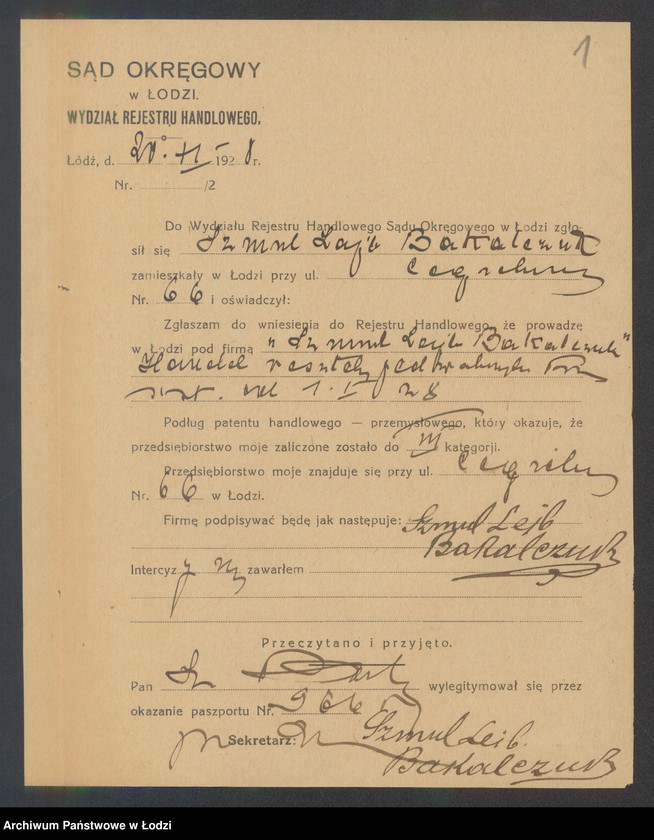 1
SĄD OKRĘGOWY
w ŁODZI.
WYDZIAŁ REJESTRU HANDLOWEGO.
Łódź, d. 20. XI 1928 r.
Nr. /2
Do Wydziału Rejestru Handlowego Sądu Okręgowego w Łodzi zgło-
sił się Szmul Lajb Bakalczuk
zamieszkały w Łodzi przy ul. Cegielnej
Nr. 66 i oświadczył:
Zgłaszam do wniesienia do Rejestru Handlowego, że prowadzę
w Łodzi pod firmą „Szmul Lejb Bakalczuk"
Handel resztek
od 1. I 28
Podług patentu handlowego — przemysłowego, który okazuje, że
przedsiębiorstwo moje zaliczone zostało do III kategorji.
Przedsiębiorstwo moje znajduje się przy ul. Cegielnej
Nr. 66 w Łodzi.
Firmę podpisywać będę jak następuje: Szmul Lejb
Bakalczuk
Intercyzy nie zawarłem
Przeczytano i przyjęto.
Pan Sz wylegitymował się przez
okazanie paszportu Nr. 966
Sekretarz: Szmul Lejb.
Bakalczuk
Archiwum Państwowe w Łodzi